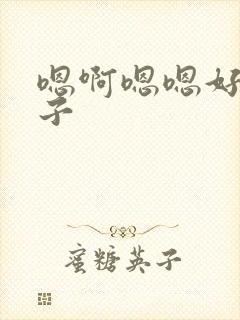 嗯啊嗯嗯好
子
蜜糖英子